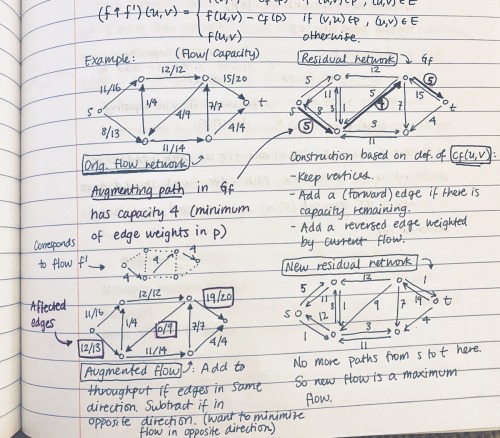 (f↑f')(u,v) =
f(u,v) - cf(p) if (v,u)∈p, (u,v)∈E
f(u,v) otherwise.
Example: (Flow/capacity)
12/12
11/16
15/20
s
1/4
4/9
7/7
t
8/13
4/4
11/14
Orig. flow network
Residual network Gf
12
5
5
5
11
15
s
8
3
1
4
7
t
5
3
4
11
Augmenting path in Gf
has capacity 4 (minimum
of edge weights in p)
Construction based on def. of cf(u,v):
- Keep vertices.
- Add a (forward) edge if there is
capacity remaining.
- Add a reversed edge weighted
by current flow.
Corresponds
to flow f'
4
4
4
Affected
edges
12/12
11/16
19/20
1/4
0/9
7/7
12/13
4/4
11/14
Augmented flow: Add to
throughput if edges in same
direction. Subtract if in
opposite direction. (want to minimize
flow in opposite direction.)
New residual network
12
1
5
11
s
12
3
1
9
7
19
t
1
3
4
11
No more paths from s to t here.
So new flow is a maximum
flow.